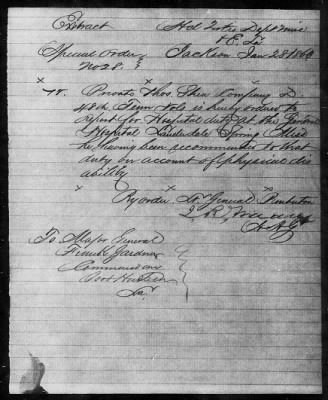 Extract Hd Qrtrs Dept Miss
& E. La
Special Order Jackson Jan 28 1863
No 28.
x x x x
IV. Private Thos Shea Company D
48th Tenn Vols is hereby ordered to
report for Hospital duty at the General
Hospital Lauderdale Springs Miss
he having been recommended to that
duty on account of physical dis
ability
x x x
By order Lt General Pemberton
J. R. Waddy
A A G
To Major General
Frank Gardner
Commanding
Port Hudson
La